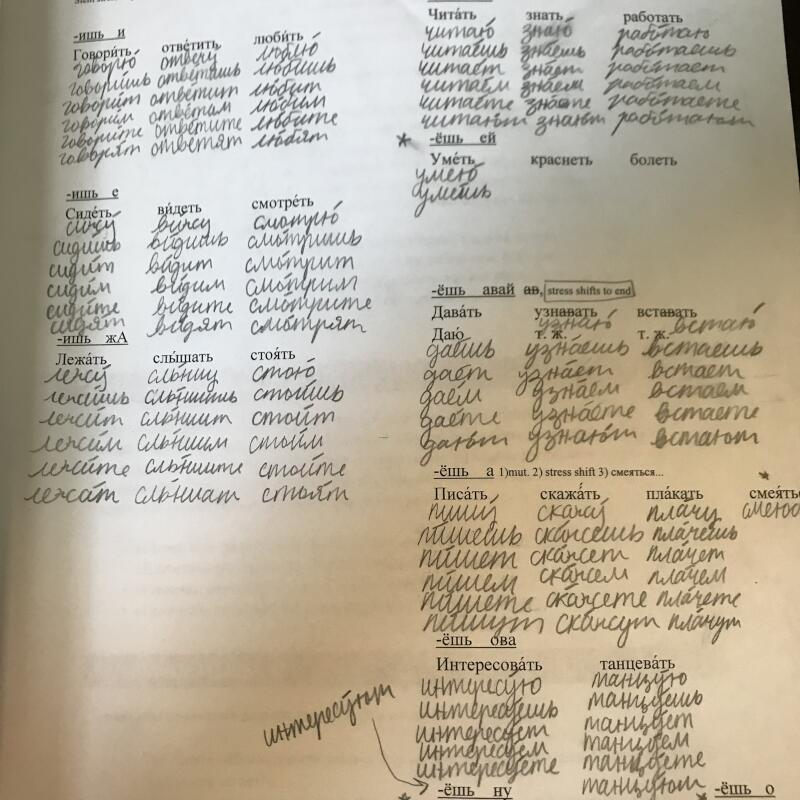 -ишь и
Говори́ть отве́тить люби́ть
говорю́ отвечу люблю́
говори́шь ответишь лю́бишь
говори́т ответит лю́бит
говори́м ответим лю́бим
говори́те отве́тите лю́бите
говоря́т отве́тят лю́бят
-ишь е
Сиде́ть ви́деть смотре́ть
сижу́ ви́жу смотрю́
сиди́шь ви́дишь смо́тришь
сиди́т ви́дит смо́трит
сиди́м ви́дим смо́трим
сиди́те ви́дите смо́трите
сидя́т ви́дят смо́трят
-ишь жА
Лежа́ть слы́шать стоя́ть
лежу́ слы́шу стою́
лежи́шь слы́шишь стои́шь
лежи́т слы́шит стои́т
лежи́м слы́шим стои́м
лежи́те слы́шите стои́те
лежа́т слы́шат стоя́т
Чита́ть знать работать
читаю знаю рабо́таю
чита́ешь зна́ешь рабо́таешь
чита́ет зна́ет рабо́тает
чита́ем зна́ем рабо́таем
чита́ете зна́ете рабо́таете
чита́ют зна́ют рабо́тают
* -ёшь ей
Уме́ть краснеть болеть
умею
умеешь
-ёшь авай ав, stress shifts to end
Дава́ть узнавать вставать
Даю́ т. ж. узнаю́ т. ж. встаю́
даёшь узна́ешь встаешь
даёт узна́ет встает
даём узна́ем встаем
даёте узна́ете встаете
дают узнают встают
-ёшь а 1)mut. 2) stress shift 3) смеяться...
Писа́ть скажа́ть пла́кать
пишу́ скажу́ пла́чу
пи́шешь ска́жешь пла́чешь
пи́шет ска́жет пла́чет
пи́шем ска́жем пла́чем
пи́шете ска́жете пла́чете
пи́шут ска́жут пла́чут
-ёшь ова
Интересова́ть танцева́ть
интересу́ю танцу́ю
интересу́ешь танцу́ешь
интересу́ет танцу́ет
интересу́ем танцу́ем
интересу́ете танцу́ете
интересу́ют танцу́ют
* -ёшь ну * -ёшь о